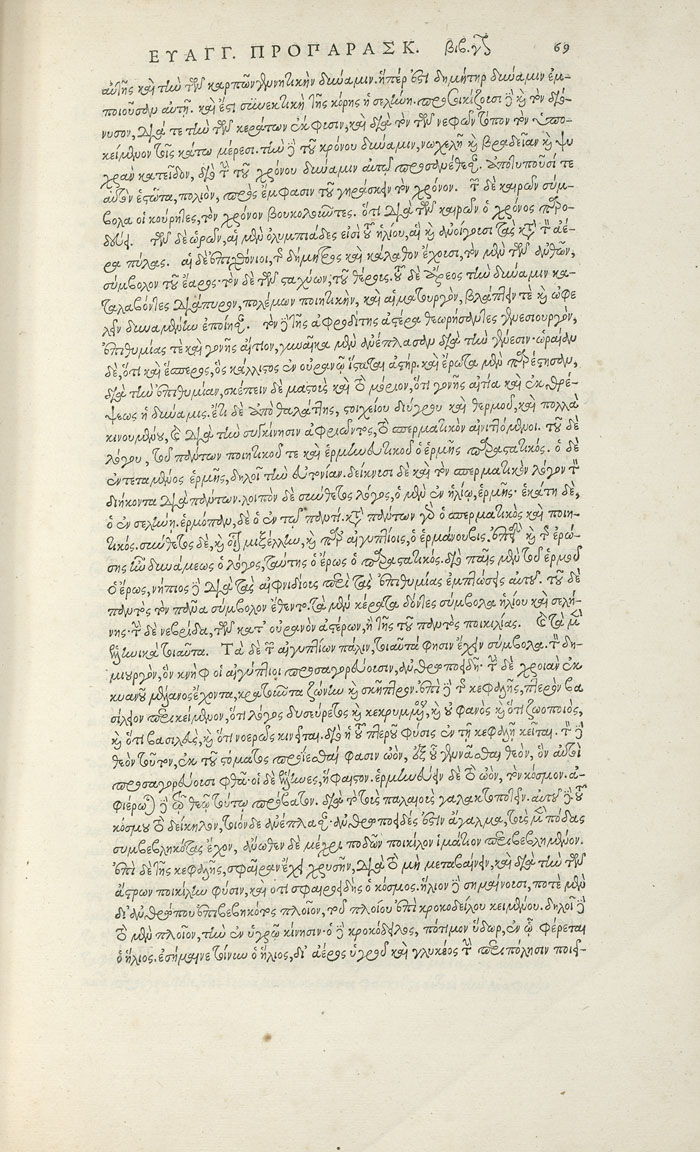 ΕΥΑΓΓ. ΠΡΟΠΑΡΑΣΚ. βιβ. γ 69
αὐτῆς καὶ τὴν τῶν καρπῶν γεννητικὴν δύναμιν. ἥπέρ ἐστι δημήτηρ δύναμιν ἐμ-
ποιοῦσαν αὐτῇ. καὶ ἔστι συνεκτικὴ τῆς κόρης ἡ σελήνη. προσοικίζουσι δὲ καὶ τὸν διό-
νυσον, διά τε τὴν τῶν κεράτων ἔκφυσιν, καὶ διὰ τὸν τῶν νεφῶν τόπον τὸν ὑπο-
κείμενον τοῖς κάτω μέρεσι. τὴν δὲ τοῦ κρόνου δύναμιν, νωχελῆ καὶ βραδεῖαν καὶ ψυ
χρὰν κατεῖδον, διὸ τὴν τοῦ χρόνου δύναμιν αὐτῷ προσανέθεσαν. ὑποτυποῦσί τε
αὐτὸν ἑστῶτα, πολιὸν, πρὸς ἔμφασιν τοῦ γηράσκειν τὸν χρόνον. τῶν δὲ καιρῶν σύμ-
βολα οἱ κουρῆτες, τὸν χρόνον βουκολοῦντες. ὅτι διὰ τῶν καιρῶν ὁ χρόνος παρο-
δεύει. τῶν δὲ ὡρῶν, αἱ μὲν ὀλυμπιάδες εἰσὶ τοῦ ἡλίου, αἳ καὶ ἀνοίγουσι τὰς κατὰ τὸν ἀέ-
ρα πύλας. αἱ δὲ ἐπιχθόνιοι, τῆς δήμητρος καὶ κάλαθον ἔχουσι, τὸν μὲν τῶν ἀνθῶν,
σύμβολον τοῦ ἔαρος· τὸν δὲ τῶν σταχύων, τοῦ θέρους. τοῦ δὲ ἄρεος τὴν δύναμιν κα-
ταλαβόντες διάπυρον, πολέμων ποιητικὴν, καὶ αἱματουργὸν, βλάπτειν τε καὶ ὠφε
λεῖν δυναμένην ἐποίησαν. τὸν δὲ τῆς ἀφροδίτης ἀστέρα θεωρήσαντες γενεσιουργὸν,
ἐπιθυμίας τε καὶ γονῆς αἴτιον, γυναῖκα μὲν ἀνέπλασαν διὰ τὴν γένεσιν· ὡραίαν
δὲ, ὅτι καὶ ἕσπερος, ὃς κάλλιστος ἐν οὐρανῷ ἵσταται ἀστήρ. καὶ ἔρωτα μὲν παρέστησαν,
διὰ τὴν ἐπιθυμίαν, σκέπειν δὲ μαστοὺς καὶ τὸ μόριον, ὅτι γονῆς αἰτία καὶ ἐκθρέ-
ψεως ἡ δύναμις. ἔτι δὲ ἀπὸ θαλάττης, στοιχείου διύγρου καὶ θερμοῦ, καὶ πολλὰ
κινουμένου, καὶ διὰ τὴν συγκίνησιν ἀφριῶντος, τὸ σπερματικὸν αἰνιττόμενοι. τοῦ δὲ
λόγου, τοῦ πάντων ποιητικοῦ τε καὶ ἑρμηνευτικοῦ ὁ ἑρμῆς παραστατικός. ὁ δὲ
ἐντεταμένος ἑρμῆς, δηλοῖ τὴν εὐτονίαν. δείκνυσι δὲ καὶ τὸν σπερματικὸν λόγον τὸν
διήκοντα διὰ πάντων. λοιπὸν δὲ σύνθετος λόγος, ὁ μὲν ἐν ἡλίῳ, ἑρμῆς· ἑκάτη δὲ,
ὁ ἐν σελήνῃ. ἑρμόπαν, δὲ ὁ ἐν τῷ παντί. κατὰ πάντων γὰρ ὁ σπερματικὸς καὶ ποιη-
τικός. σύνθετος δὲ, καὶ οἷον μιξέλλην, καὶ παρ' αἰγυπτίοις, ὁ ἑρμάνουβις. ἐπεὶ δὲ καὶ τῆς ἐρώ-
σης ἦν δυνάμεως ὁ λόγος, ταύτης ὁ ἔρως ὁ παραστατικός. διὸ παῖς μὲν τοῦ ἑρμοῦ
ὁ ἔρως, νήπιος δὲ διὰ τὰς αἰφνιδίους περὶ τὰς ἐπιθυμίας ἐμπτώσεις αὐτοῦ. τοῦ δὲ
παντὸς τὸν πᾶνα σύμβολον ἔθεντο. τὰ μὲν κέρατα δόντες σύμβολα ἡλίου καὶ σελή-
νης· τὴν δὲ νεβρίδα, τῶν κατ' οὐρανὸν ἀστέρων, ἢ τῆς τοῦ παντὸς ποικιλίας. καὶ τὰ μὲν
ἑλληνικὰ τοιαῦτα. Τὰ δὲ τῶν αἰγυπτίων πάλιν, τοιαῦτά φησιν ἔχειν σύμβολα. τὸν δη-
μιουργὸν, ὃν κνὴφ οἱ αἰγύπτιοι προσαγορεύουσιν, ἀνθρωποειδῆ· τὴν δὲ χροιὰν ἐκ
κυανοῦ μέλανος ἔχοντα, κρατοῦντα ζώνην καὶ σκῆπτρον. ἐπὶ δὲ τῆς κεφαλῆς, πτερὸν βα
σίλειον περικείμενον, ὅτι λόγος δυσεύρετος καὶ κεκρυμμένος, καὶ οὐ φανὸς καὶ ὅτι ζωοποιὸς,
καὶ ὅτι βασιλεὺς, καὶ ὅτι νοερῶς κινεῖται. διὸ ἡ τοῦ πτεροῦ φύσις ἐν τῇ κεφαλῇ κεῖται. τὸν δὲ
θεὸν τοῦτον, ἐκ τοῦ στόματος προΐεσθαί φασιν ὠὸν, ἐξ οὗ γεννᾶσθαι θεὸν, ὃν αὐτοὶ
προσαγορεύουσι φθᾶ· οἱ δὲ ἕλληνες, ἥφαιστον. ἑρμηνεύειν δὲ τὸ ὠὸν, τὸν κόσμον. ἀ-
φιέρωται δὲ τῷ θεῷ τούτῳ πρόβατον. διὰ τὸ τοὺς παλαιοὺς γαλακτοποτεῖν. αὐτοῦ δὲ τοῦ
κόσμου τὸ δείκηλον, τοιόνδε ἀνέπλασαν. ἀνθρωποειδές ἐστιν ἄγαλμα, τοὺς μὲν πόδας
συμβεβληκότας ἔχον, ἄνωθεν δὲ μέχρι ποδῶν ποικίλον ἱμάτιον περιβεβλημένον.
ἐπὶ δὲ τῆς κεφαλῆς, σφαῖραν ἔχει χρυσῆν, διὰ τὸ μὴ μεταβαίνειν, καὶ διὰ τὴν τῶν
ἄστρων ποικίλην φύσιν, καὶ ὅτι σφαιροειδὴς ὁ κόσμος. ἥλιον δὲ σημαίνουσι, ποτὲ μὲν
δι' ἀνθρώπου ἐπιβεβηκότος πλοῖον, τοῦ πλοίου ἐπὶ κροκοδείλου κειμένου. δηλοῖ δὲ
τὸ μὲν πλοῖον, τὴν ἐν ὑγρῷ κίνησιν· ὁ δὲ κροκόδειλος, πότιμον ὕδωρ, ἐν ᾧ φέρεται
ὁ ἥλιος. ἐσήμαινε τοίνυν ὁ ἥλιος, δι' ἀέρος ὑγροῦ καὶ γλυκέος τὴν περιπόλησιν ποιεῖ-